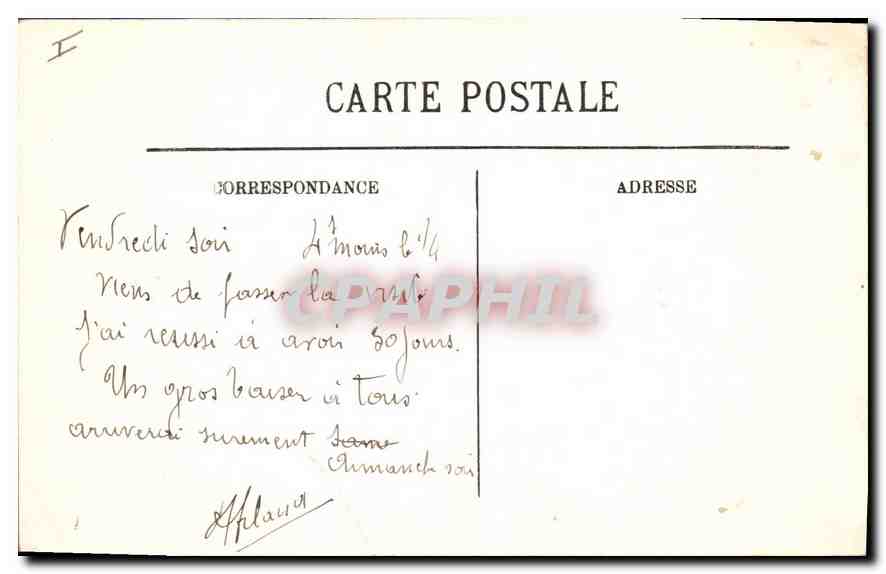 I
CARTE POSTALE
CORRESPONDANCE
ADRESSE
Vendredi soir 4h moins le 1/4
Viens de passer la visite
CPAPHIL
J'ai reussi à avoir 30 jours.
Un gros baiser à Tous
arriverai surement same
dimanche soir